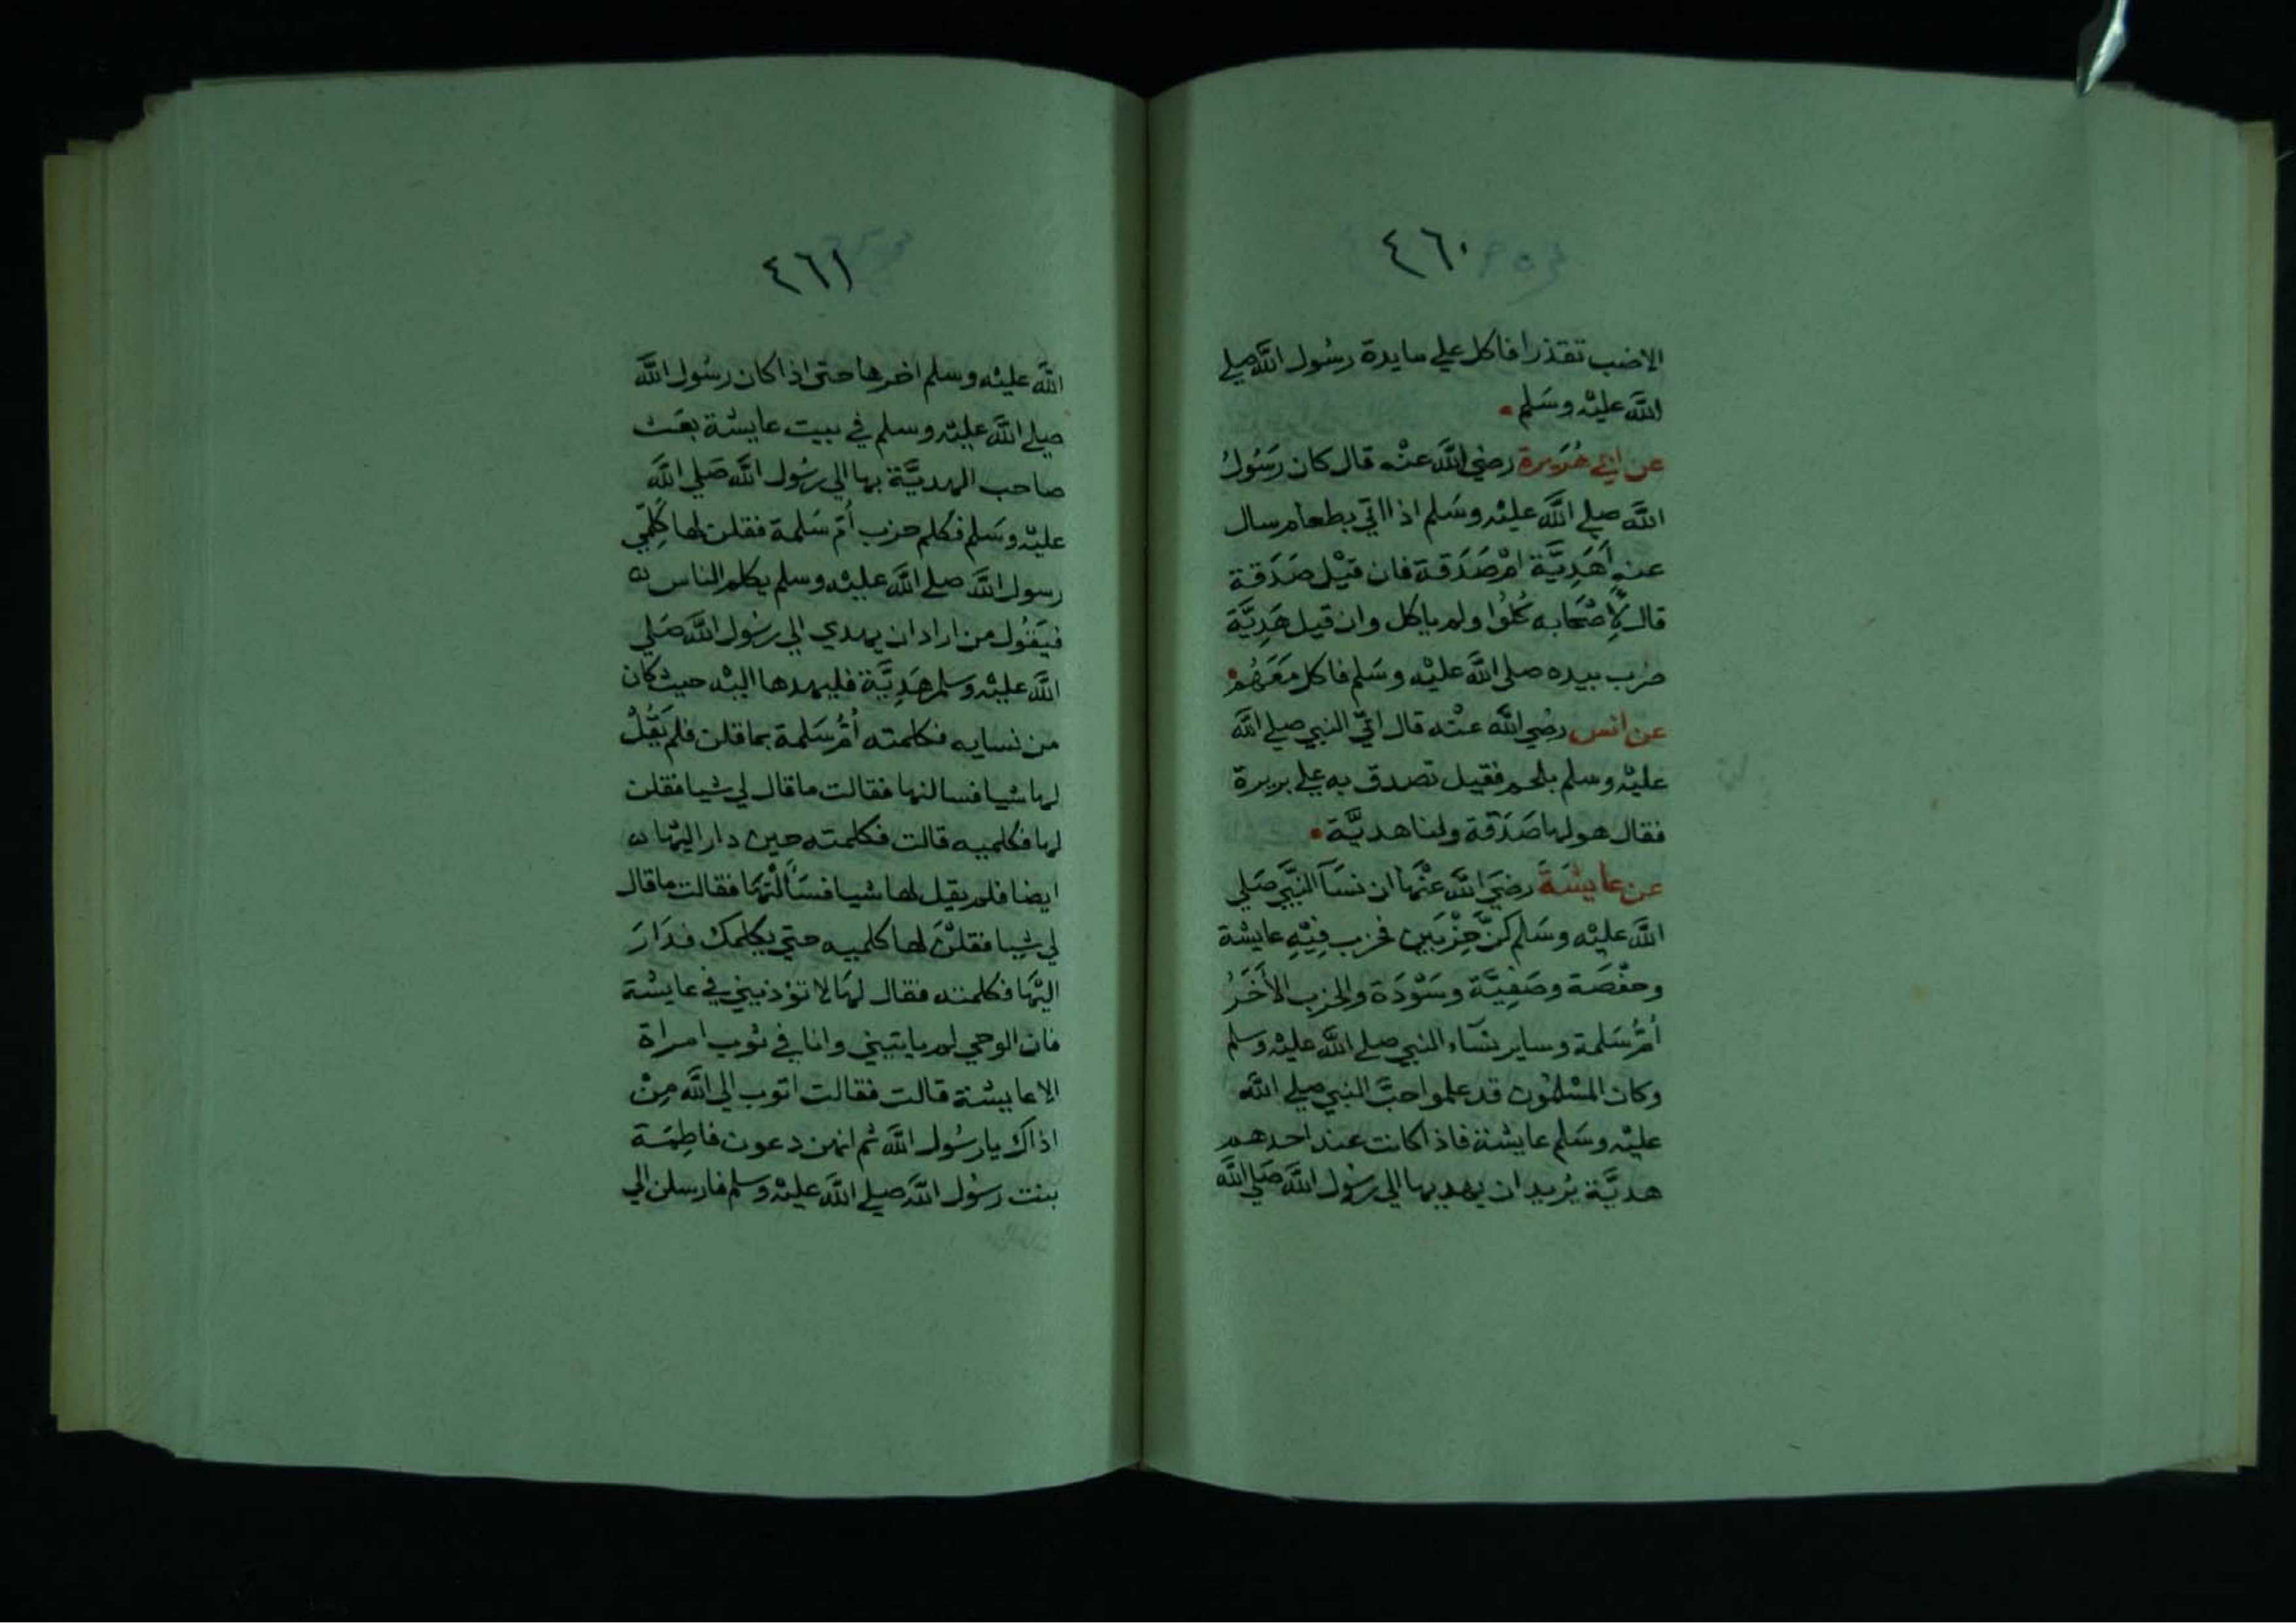 ٤٦٠
الاضب تقذرا فاكل علي مايدة رسُول الله صلي
الله عليْه وسَلم
عن ابي هُرَيرة رضي الله عنْه قال كان رَسُولُ
الله صلي الله عليْه وسَلم اذا اتي بطعام سال
عنه أَهَدِيَّة امْ صَدَقة فان قيْل صَدَقة
قال لأِصْحَابه كُلوُا ولم ياكل وان قيل هَدِيَّة
ضرب بيده صلى الله عليْه وسَلم فاكل مَعَهُمْ
عن انس رضي الله عنْه قال اتيَ النبي صلي الله
عليْه وسلم بلحم فقيل تصدق به علي بريرة
فقال هو لها صَدَقة ولنا هديَّة
عن عايشَةَ رضيَ الله عنْهَا ان نسَآ النَّبَّي صَلي
الله عليْه وسَلم كنَّ حِزْبَين فحزب فِيْهِ عايشة
وحفْصَة وصَفِيَّة وسَوْدَة والحزب الأَخَرُ
أمُّ سَلمة وساير نسَآء النبي صلي الله عليْه وسلم
وكان المسْلمُون قد علموا حبَّ النبي صلي الله
عليْه وسَلم عايشة فاذا كانت عند احدهم
هديَّة يُريد ان يهديها الي رسُول الله صَلي الله
٤٦١
الله عليْه وسلم اخرها حتى اذا كان رسُول الله
صلي الله عليْه وسلم في بيت عايشة بعَث
صاحب الهديَّة بها الي رسُول الله صَلي الله
عليْه وسَلم فكلم حزب أمّ سَلمة فقلن لها كلِّمي
رسول الله صلي الله عليْه وسلم يكلم الناس
فيَقُول من اراد ان يهدي الي رسُول الله صَلي
الله عليْه وسلم هَدِيَّة فليهدها اليْه حيث كان
من نسايه فكلمته أمُّ سَلمة بما قلن فلم يَقُلْ
لها شيا فسالنها فقالت ما قال لي شيا فقلن
لها فكلميه قالت فكلمته حين دار اليْها
ايضا فلم يقل لها شيا فسَأَلْنَهَا فقالت ما قال
لي شيا فقلنَ لها كلميه حتي يكلمك فدَارَ
اليْهَا فكلمته فقال لهَا لا تؤذيني في عايشة
فان الوحي لم ياتيني وانا في ثوب امراة
الا عايشة قالت فقالت اتوب الي الله مِنْ
اذاك يا رسُول الله ثم انهن دعون فاطِمَة
بنت رسُول الله صلي الله عليْه وسلم فارسلن الي